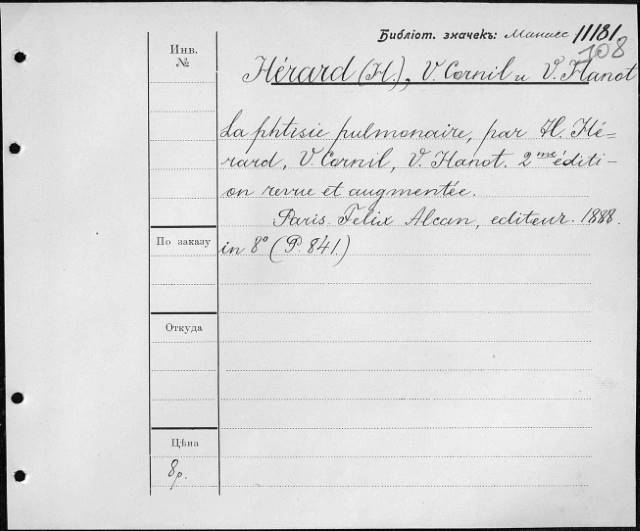 Библіот. значекъ: Манасс 11181
108
Инв.
№
Hérard (H.), V. Cornil и V. Hanot
La phtisie pulmonaire, par H. Hé-
rard, V. Cornil, V. Hanot. 2me éditi-
on revue et augmentée.
Paris. Felix Alcan, editeur. 1888.
По заказу
in 8° (P. 841.)
Откуда
Цѣна
8 р.